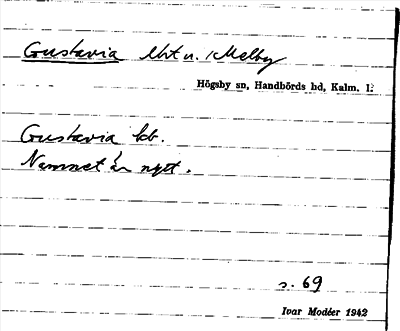 Gustavia lht u. Melby
Högsby sn, Handbörds hd, Kalm. l.
Gustavia kb.
Namnet är nytt.
s. 69
Ivar Modéer 1942